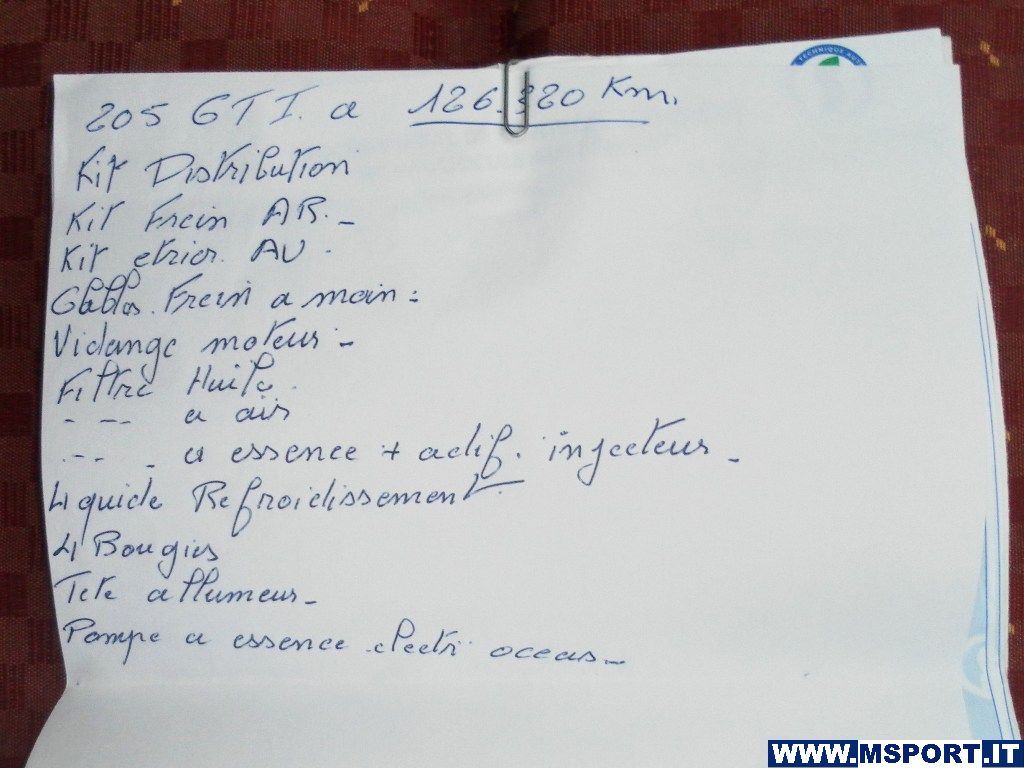 TECHNIQUE AUT
205 GTI. a 126.320 Km.
Kit Distribution
Kit Frein AR. -
Kit etrier. AV.
Cables. Frein a main -
Vidange moteur -
Filtre Huile.
- -- a air
-- - a essence + adif. injecteur -
Liquide Refroidissement.
4 Bougies
Tete allumeur -
Pompe a essence electri occas -
WWW.MSPORT.IT